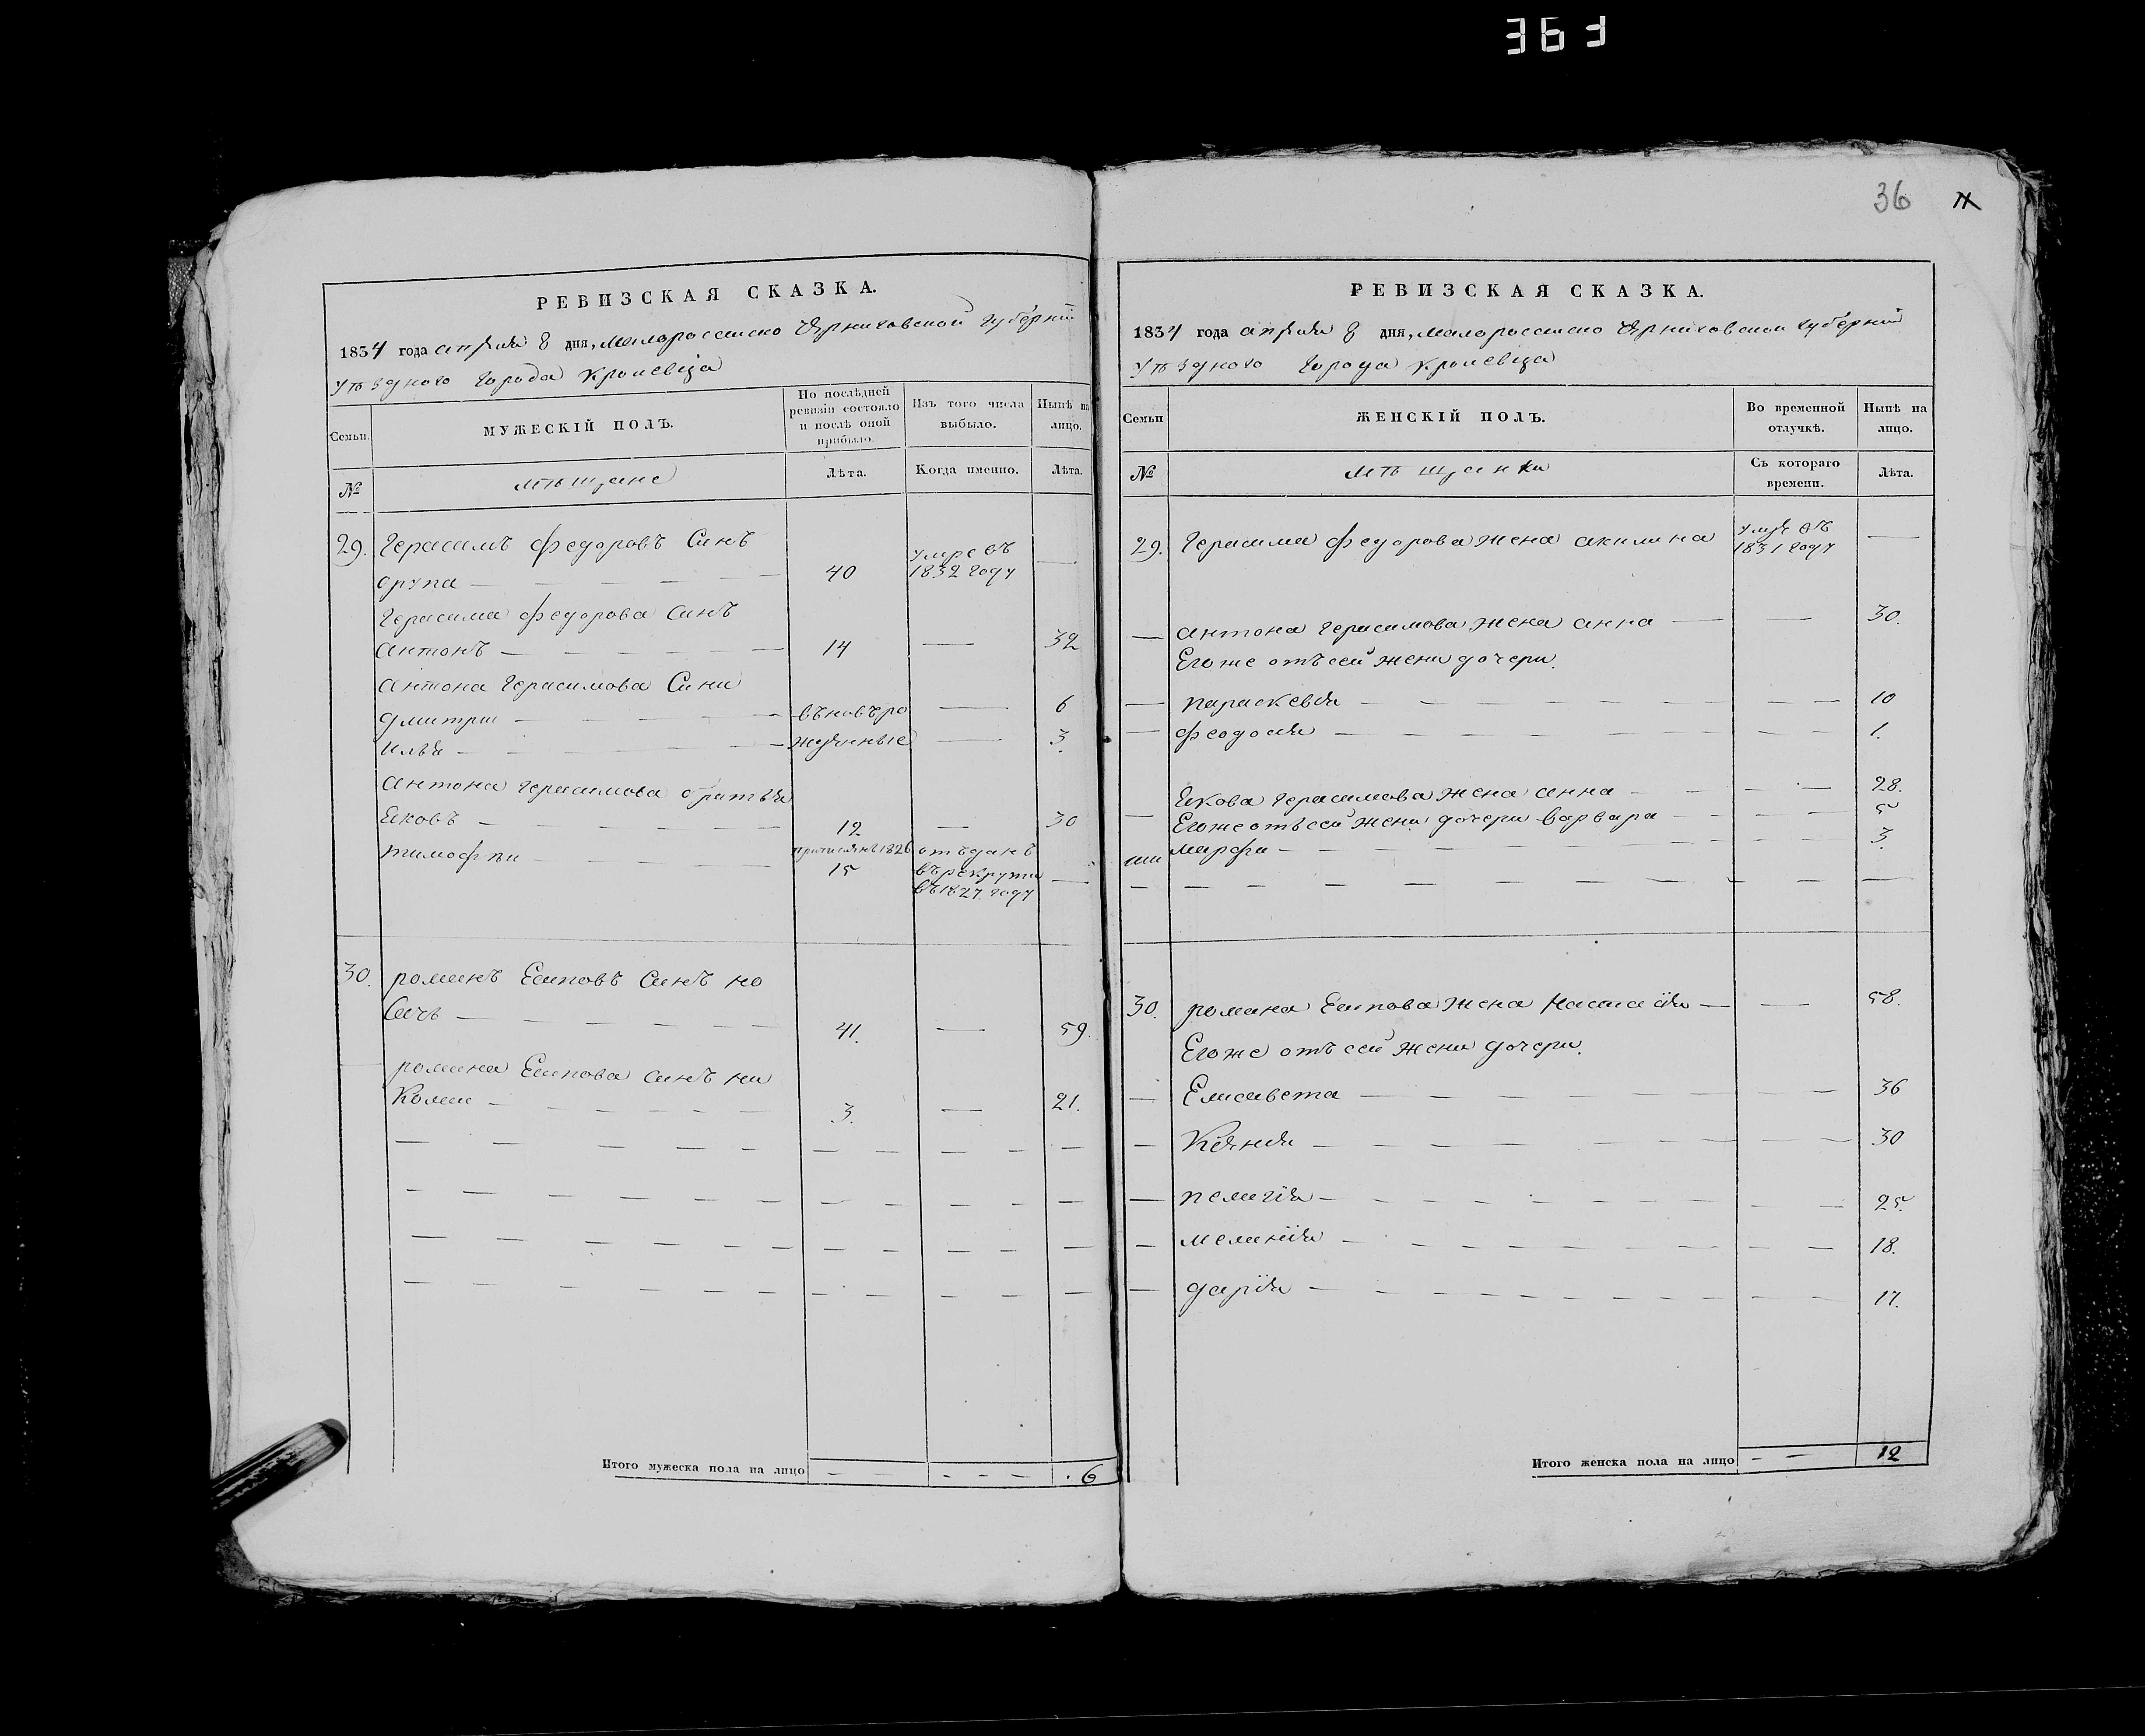 363
36
РЕВИЗСКАЯ СКАЗКА.
1834 года апреля 8 дня, малороссииско Черниховской губернии
уъзднохо города Кролевца
Семьи.
МУЖЕСКІЙ ПОЛЪ.
По послѣдней ревизіи состояло и послѣ оной прибыло
Изъ того числа выбыло.
Нынѣ на лицо.
№
мѣщане
Лѣта.
Когда именно.
Лѣта.
29. Герасимъ Федоровъ Синъ умре въ
1832 году —
40
Герасима Федорова Синъ
Антонъ — 14 — 32
Антона Герасимова Сини
Дмитрии — въновъро — 6
Илья — жденные — 3.
Антона Герасимова братья
Яковъ — 12 — 30
Тимофѣи — 1826 отъданъ
15 въ рекрути —
въ 1827 году
30. Романъ Есиповъ Синъ но
сачъ — 41. — 59.
Романа Есипова синъ ни
колаи — 3. — 21.
Итого мужеска пола на лицо — — 6
РЕВИЗСКАЯ СКАЗКА.
1834 года апреля 8 дня, малороссииско Черниховскои губернии
уъзднохо города Кролевца
Семьи
ЖЕНСКІЙ ПОЛЪ.
Во временной отлучкѣ.
Нынѣ на лицо.
№
мѣщанки
Съ котораго времени.
Лѣта.
29. Герасима Федорова жена акилина умря въ
1831 году —
— Антона Герасимова жена анна — — 30.
Егоже отъ сей жени дочери.
— параскевия — — 10
— феодосия — — 1.
Якова Герасимова жена анна — — 28.
— Егоже отъ сей жени дочери варвара — — 5
марфа — 3.
30. романа Есипова жена Настасія — — 58.
Егоже отъ сей жени дочери.
— Елисавета — — 36
— Ксяния — — 30
— пелагія — — 25.
— меланія — — 18.
— дарія — — 17.
Итого женска пола на лицо — — 12